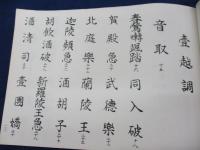 壹越調
音取 十五
春鶯囀颯踏 十六 同入破 十八
賀殿急 武德樂
北庭樂 蘭陵王
迦陵頻急 酒胡子
胡飲酒破 新羅陵王急
酒清司 壹團嬌